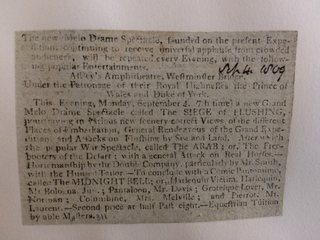 The new Melo Drame Spectacle, founded on the present Expe-
dition, continuing to receive universal applause from crowded
audiences, will be repeated every Evening, with the follow-
ing popular Entertainments.
Astley's Amphitheatre, Westminster Bridge.
Sept 4 1809
Under the Patronage of their Royal Highnesses the Prince of
Wales and Duke of York.
This Evening, Monday, September 4, (7th time) a new Grand
Melo Drame Spectacle called The SIEGE of FLUSHING,
pourtraying in various new scenery correct Views of the different
Places of Embarkation, General Rendezvous of the Grand Expe-
dition, and Attacks on Flushing by Sea and Land. After which
the popular War Spectacle, called The ARAB; or, The Free-
booters of the Desart: with a general Attack on Real Horses.—
Horsemanship by the Double Company, particularly by Mr. Smith,
with the Humorous Tailor—To conclude with a Comic Pantomime,
called The MIDNIGHT BELL; or, Harlequin Victim. Harlequin,
Mr. Robinson, Jun.; Pantaloon, Mr. Davis; Grotesque Lover, Mr.
Norman; Columbine, Mrs. Melville; and Pierrot, Mr.
Laurent.—Second price at half past eight.—Equestrian Tuition
by able Masters.